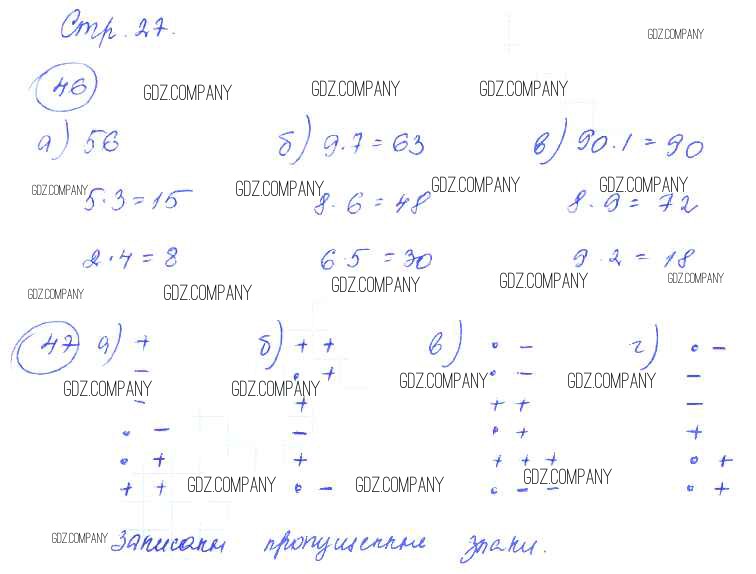 Стр. 27.
GDZ.COMPANY
46
GDZ.COMPANY GDZ.COMPANY GDZ.COMPANY
а) 56 б) 9·7=63 в) 90·1=90
GDZ.COMPANY GDZ.COMPANY GDZ.COMPANY GDZ.COMPANY
5·3=15 8·6=48 8·9=72
2·4=8 6·5=30 9·2=18
GDZ.COMPANY GDZ.COMPANY GDZ.COMPANY GDZ.COMPANY GDZ.COMPANY
47 а) + б) + + в) · - г) · -
- · + · - -
GDZ.COMPANY GDZ.COMPANY GDZ.COMPANY GDZ.COMPANY
- + + + -
· - - · + +
· + + + + + · +
+ + · - · - - · +
GDZ.COMPANY GDZ.COMPANY GDZ.COMPANY
GDZ.COMPANY Записаны пропущенные знаки.